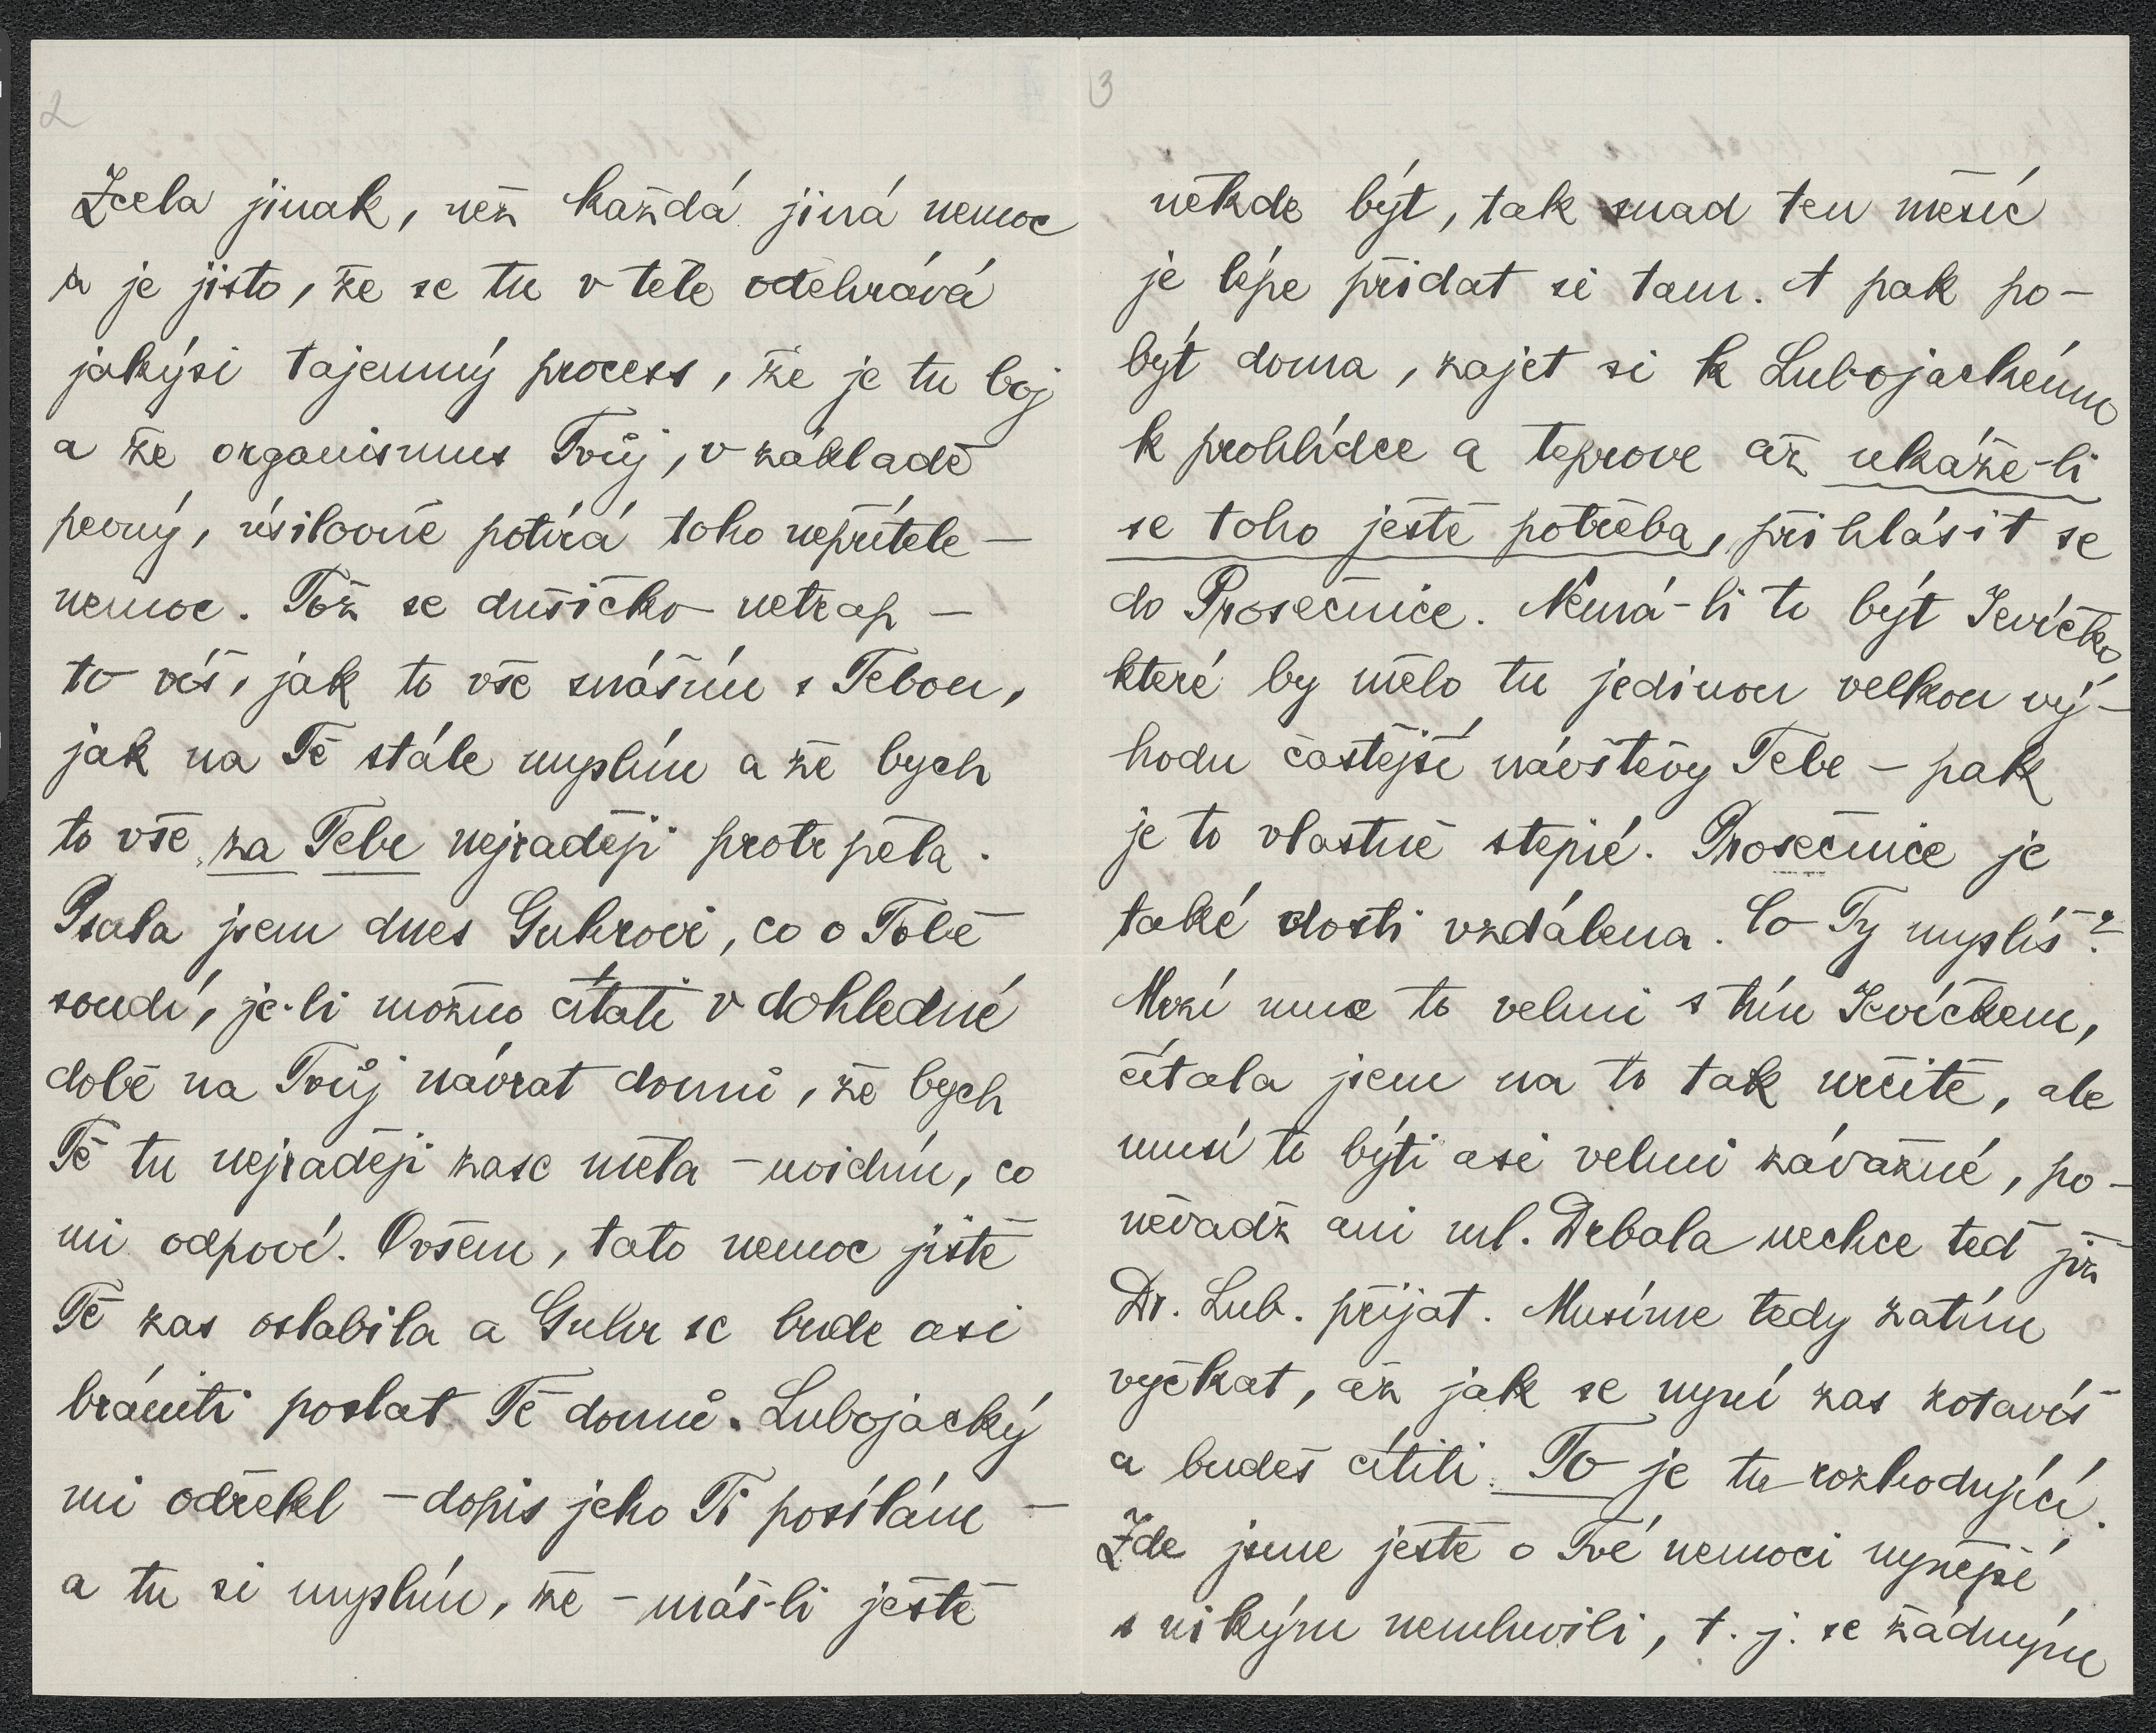 2
Zcela jinak, než každá jiná nemoc
a je jisto, že se tu v těle odehrává
jakýsi tajemný process, že je tu boj
a že organismus Tvůj, v základě
pevný, úsilovně potírá toho nepřítele —
nemoc. Tož se dušičko netrap —
to víš, jak to vše snáším s Tebou,
jak na Tě stále myslím a že bych
to vše za Tebe nejraději protrpěla.
Psala jsem dnes Guhrovi, co o Tobě
soudí, je-li možno čítati v dohledné
době na Tvůj návrat domů, že bych
Tě tu nejraději zase měla — uvidím, co
mi odpoví. Ovšem, tato nemoc jistě
Tě zas oslabila a Guhr se bude asi
brániti poslat Tě domů. Lubojacký
mi odřekl — dopis jeho Ti posílám —
a tu si myslím, že — máš-li ještě
3
někde být, tak snad ten měsíc
je lépe přidat si tam. A pak po-
být doma, zajet si k Lubojackému
k prohlídce a teprve až ukáže-li
se toho ještě potřeba, přihlásit se
do Prosečnice. Nemá-li to být Jevíčko
které by mělo tu jedinou velkou vý-
hodu častější návštěvy Tebe — pak
je to vlastně stejné. Prosečnice je
také dosti vzdálena. Co Ty myslíš?
Mrzí mne to velmi s tím Jevíčkem,
čítala jsem na to tak určitě, ale
musí to býti asi velmi závažné, po-
něvadž ani ml. Drbala nechce teď již
Dr. Lub. přijat. Musíme tedy zatím
vyčkat, až jak se nyní zas zotavíš
a budeš cítiti. To je tu rozhodující.
Zde jsme ještě o Tvé nemoci nynější
s nikým nemluvili, t. j. se žádným